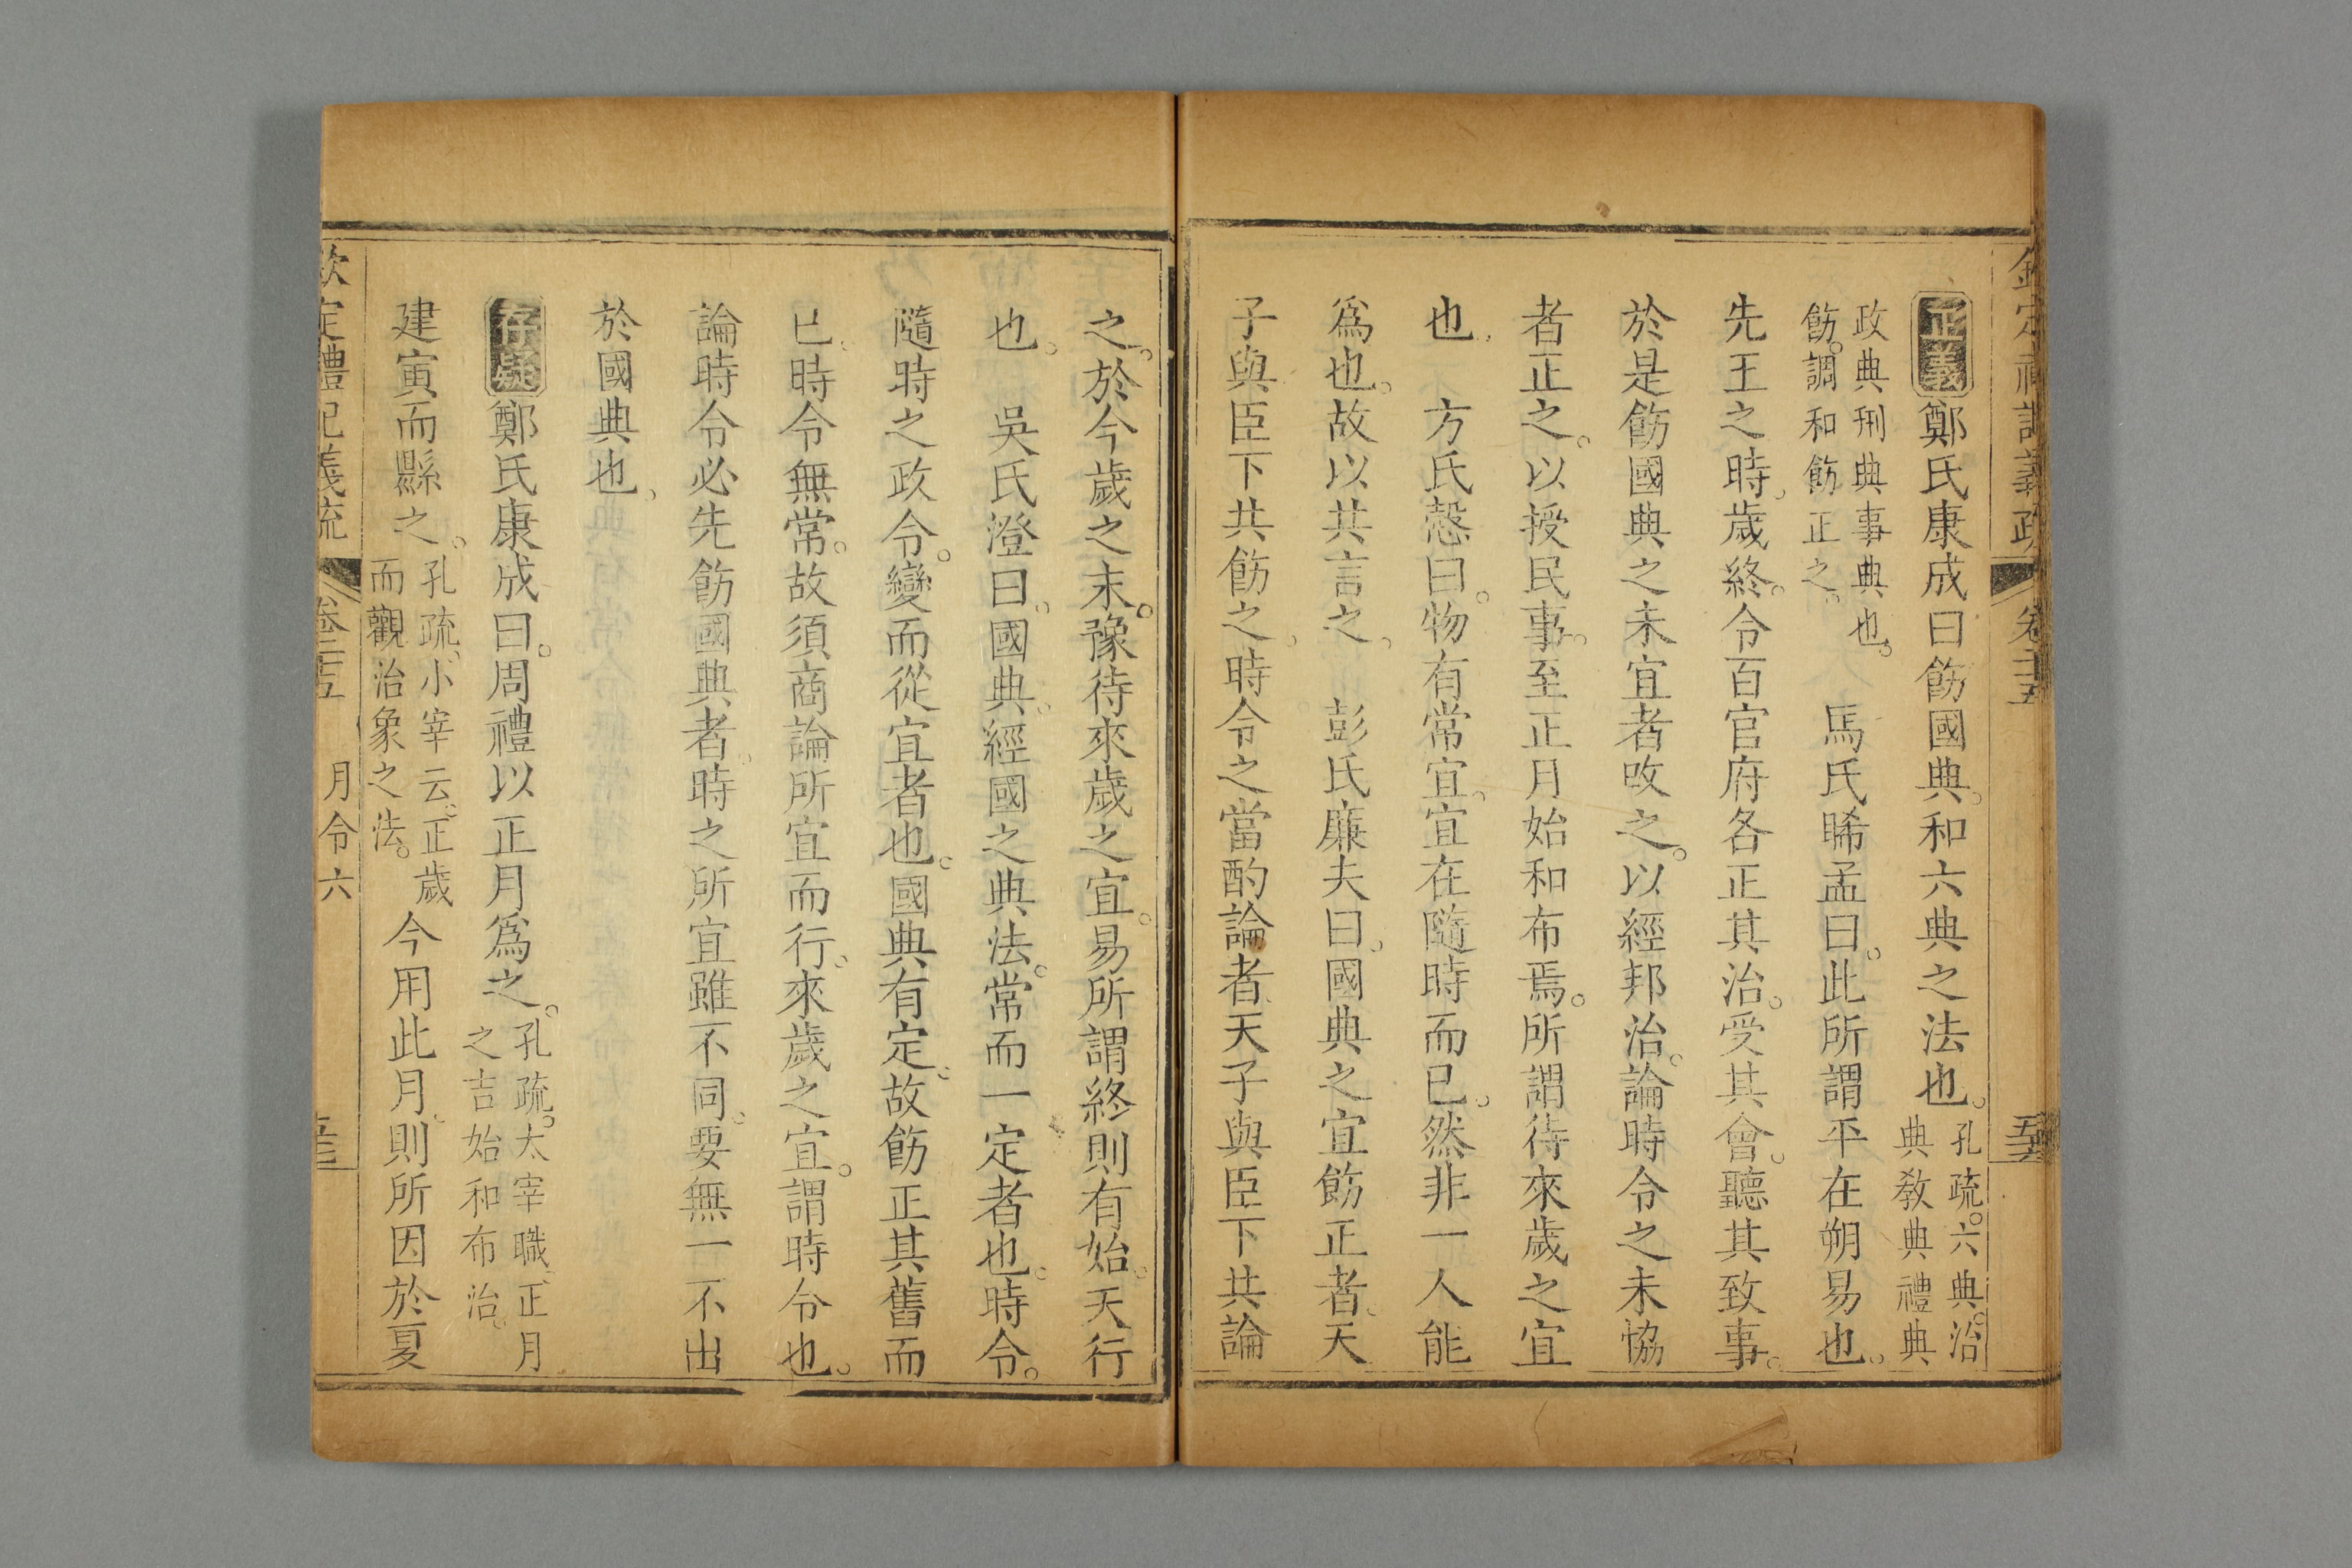 正義鄭氏康成曰飭國典和六典之法也孔疏六典治典敎典禮典
政典刑典事典也飭調和飭正之 馬氏晞孟曰此所謂平在朔易也
先王之時歲終令百官府各正其治受其會聽其致事
於是飭國典之未宜者改之以經邦治論時令之未恊
者正之以授民事至正月始和布焉所謂待來歲之宜
也 方氏慤曰物有常宜宜在隨時而已然非一人能
爲也故以共言之 彭氏廉夫曰國典之宜飭正者天
子與臣下共飭之時令之當酌論者天子與臣下共論
之於今歲之末豫待來歲之宜易所謂終則有始天行
也 吳氏澄曰國典經國之典法常而一定者也時令
隨時之政令變而從宜者也國典有定故飭正其舊而
已時令無常故須商論所宜而行來歲之宜謂時令也
論時令必先飭國典者時之所宜雖不同要無一不出
於國典也
存疑鄭氏康成曰周禮以正月爲之孔疏太宰職正月之吉始和布治
建寅而縣之孔疏小宰云正歲而觀治象之法今用此月則所因於夏
欽定禮記義疏 卷二十五 月令六